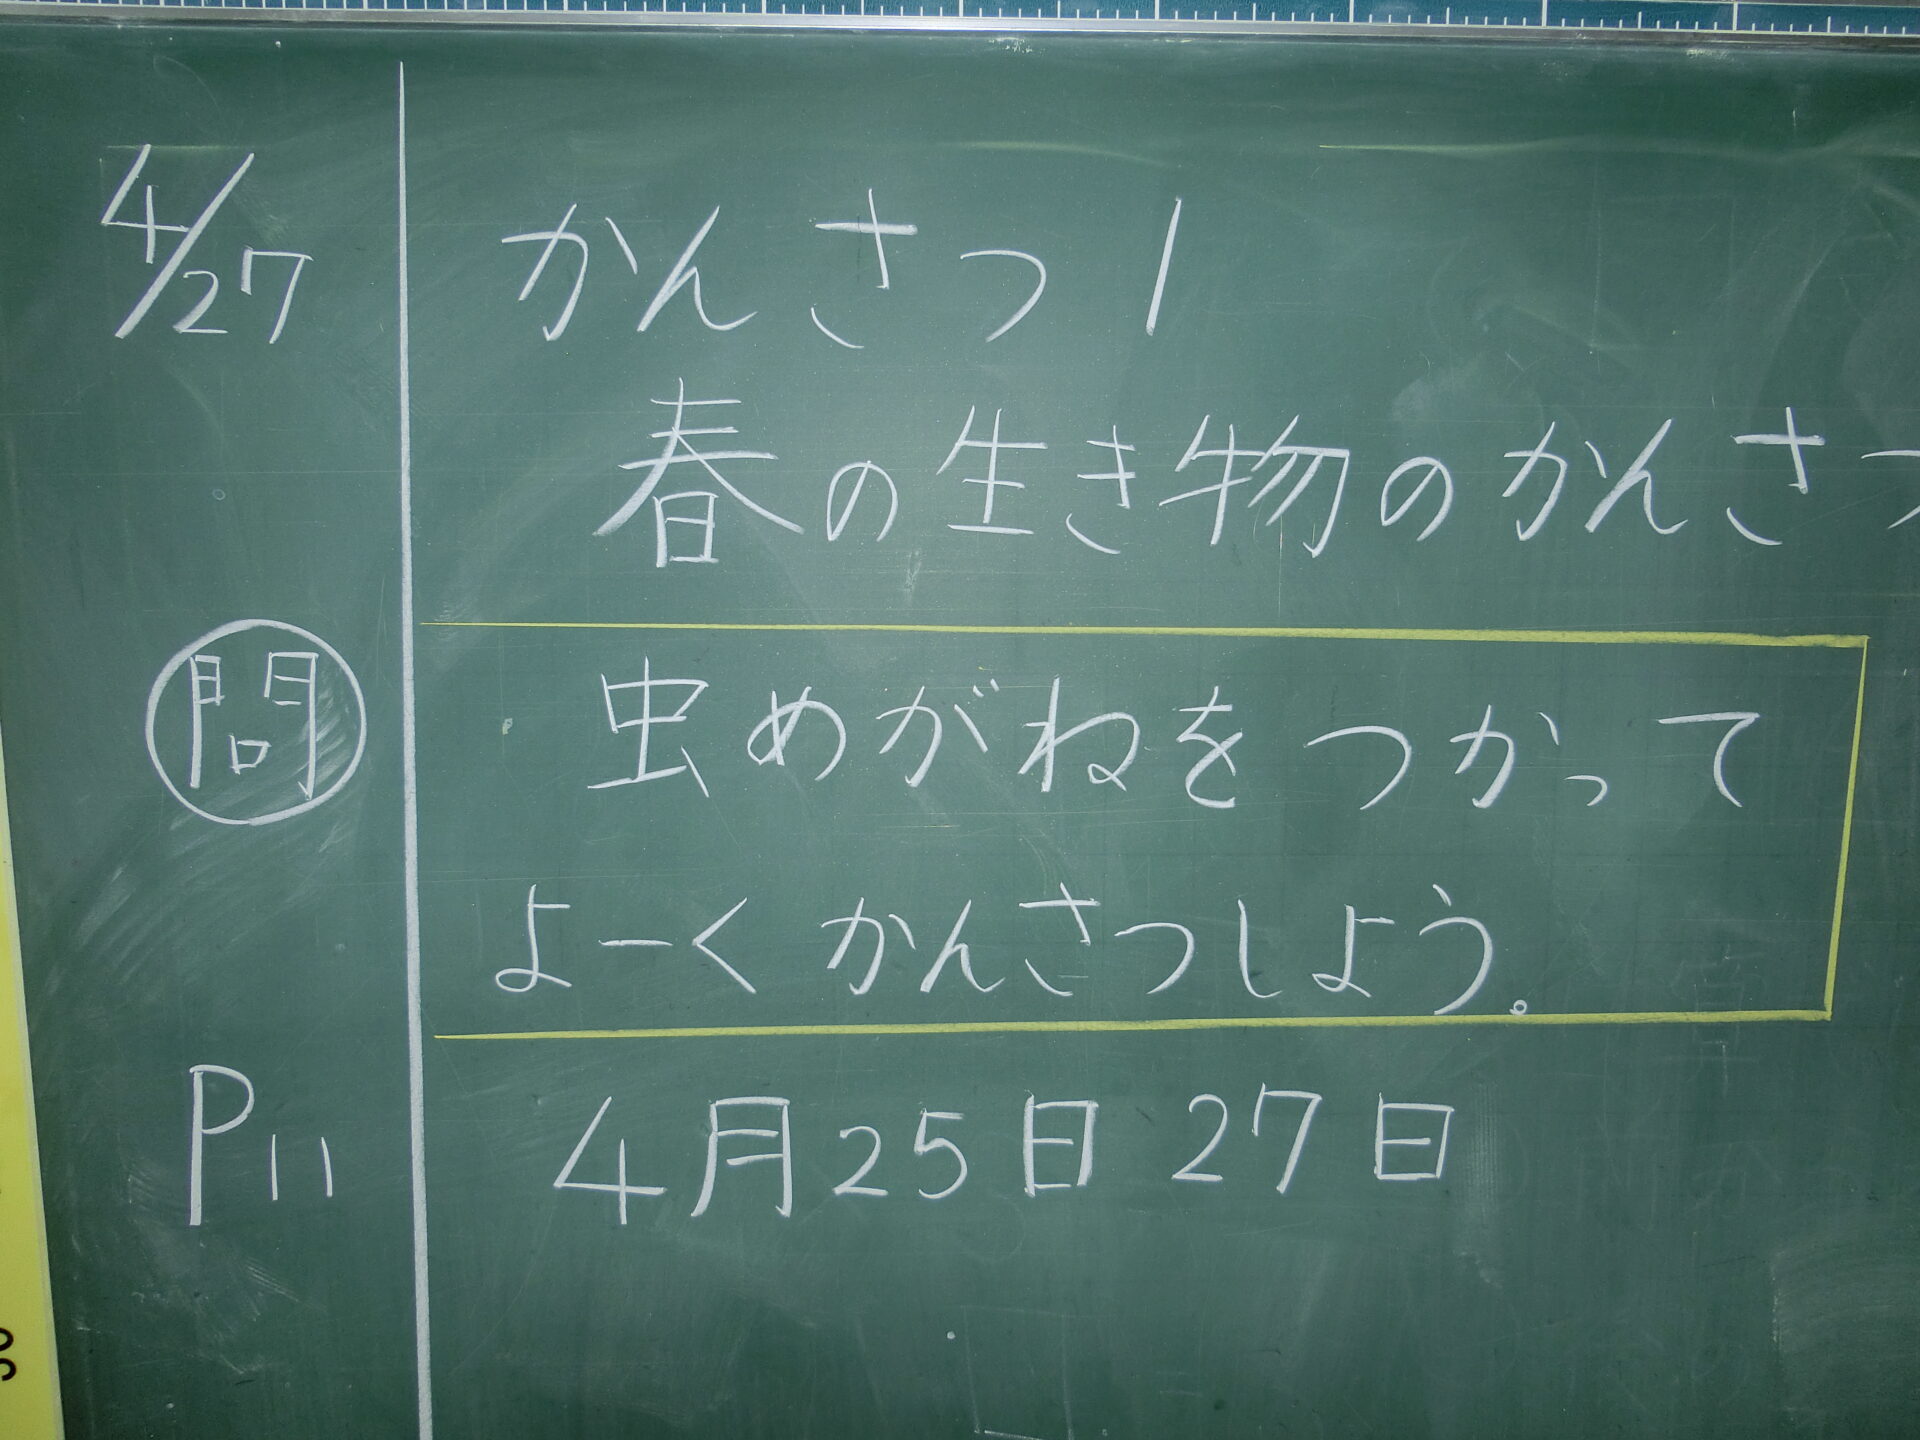 4/27 かんさつ1
春の生き物のかんさつ
問 虫めがねをつかって
よーくかんさつしよう。
P11 4月25日 27日